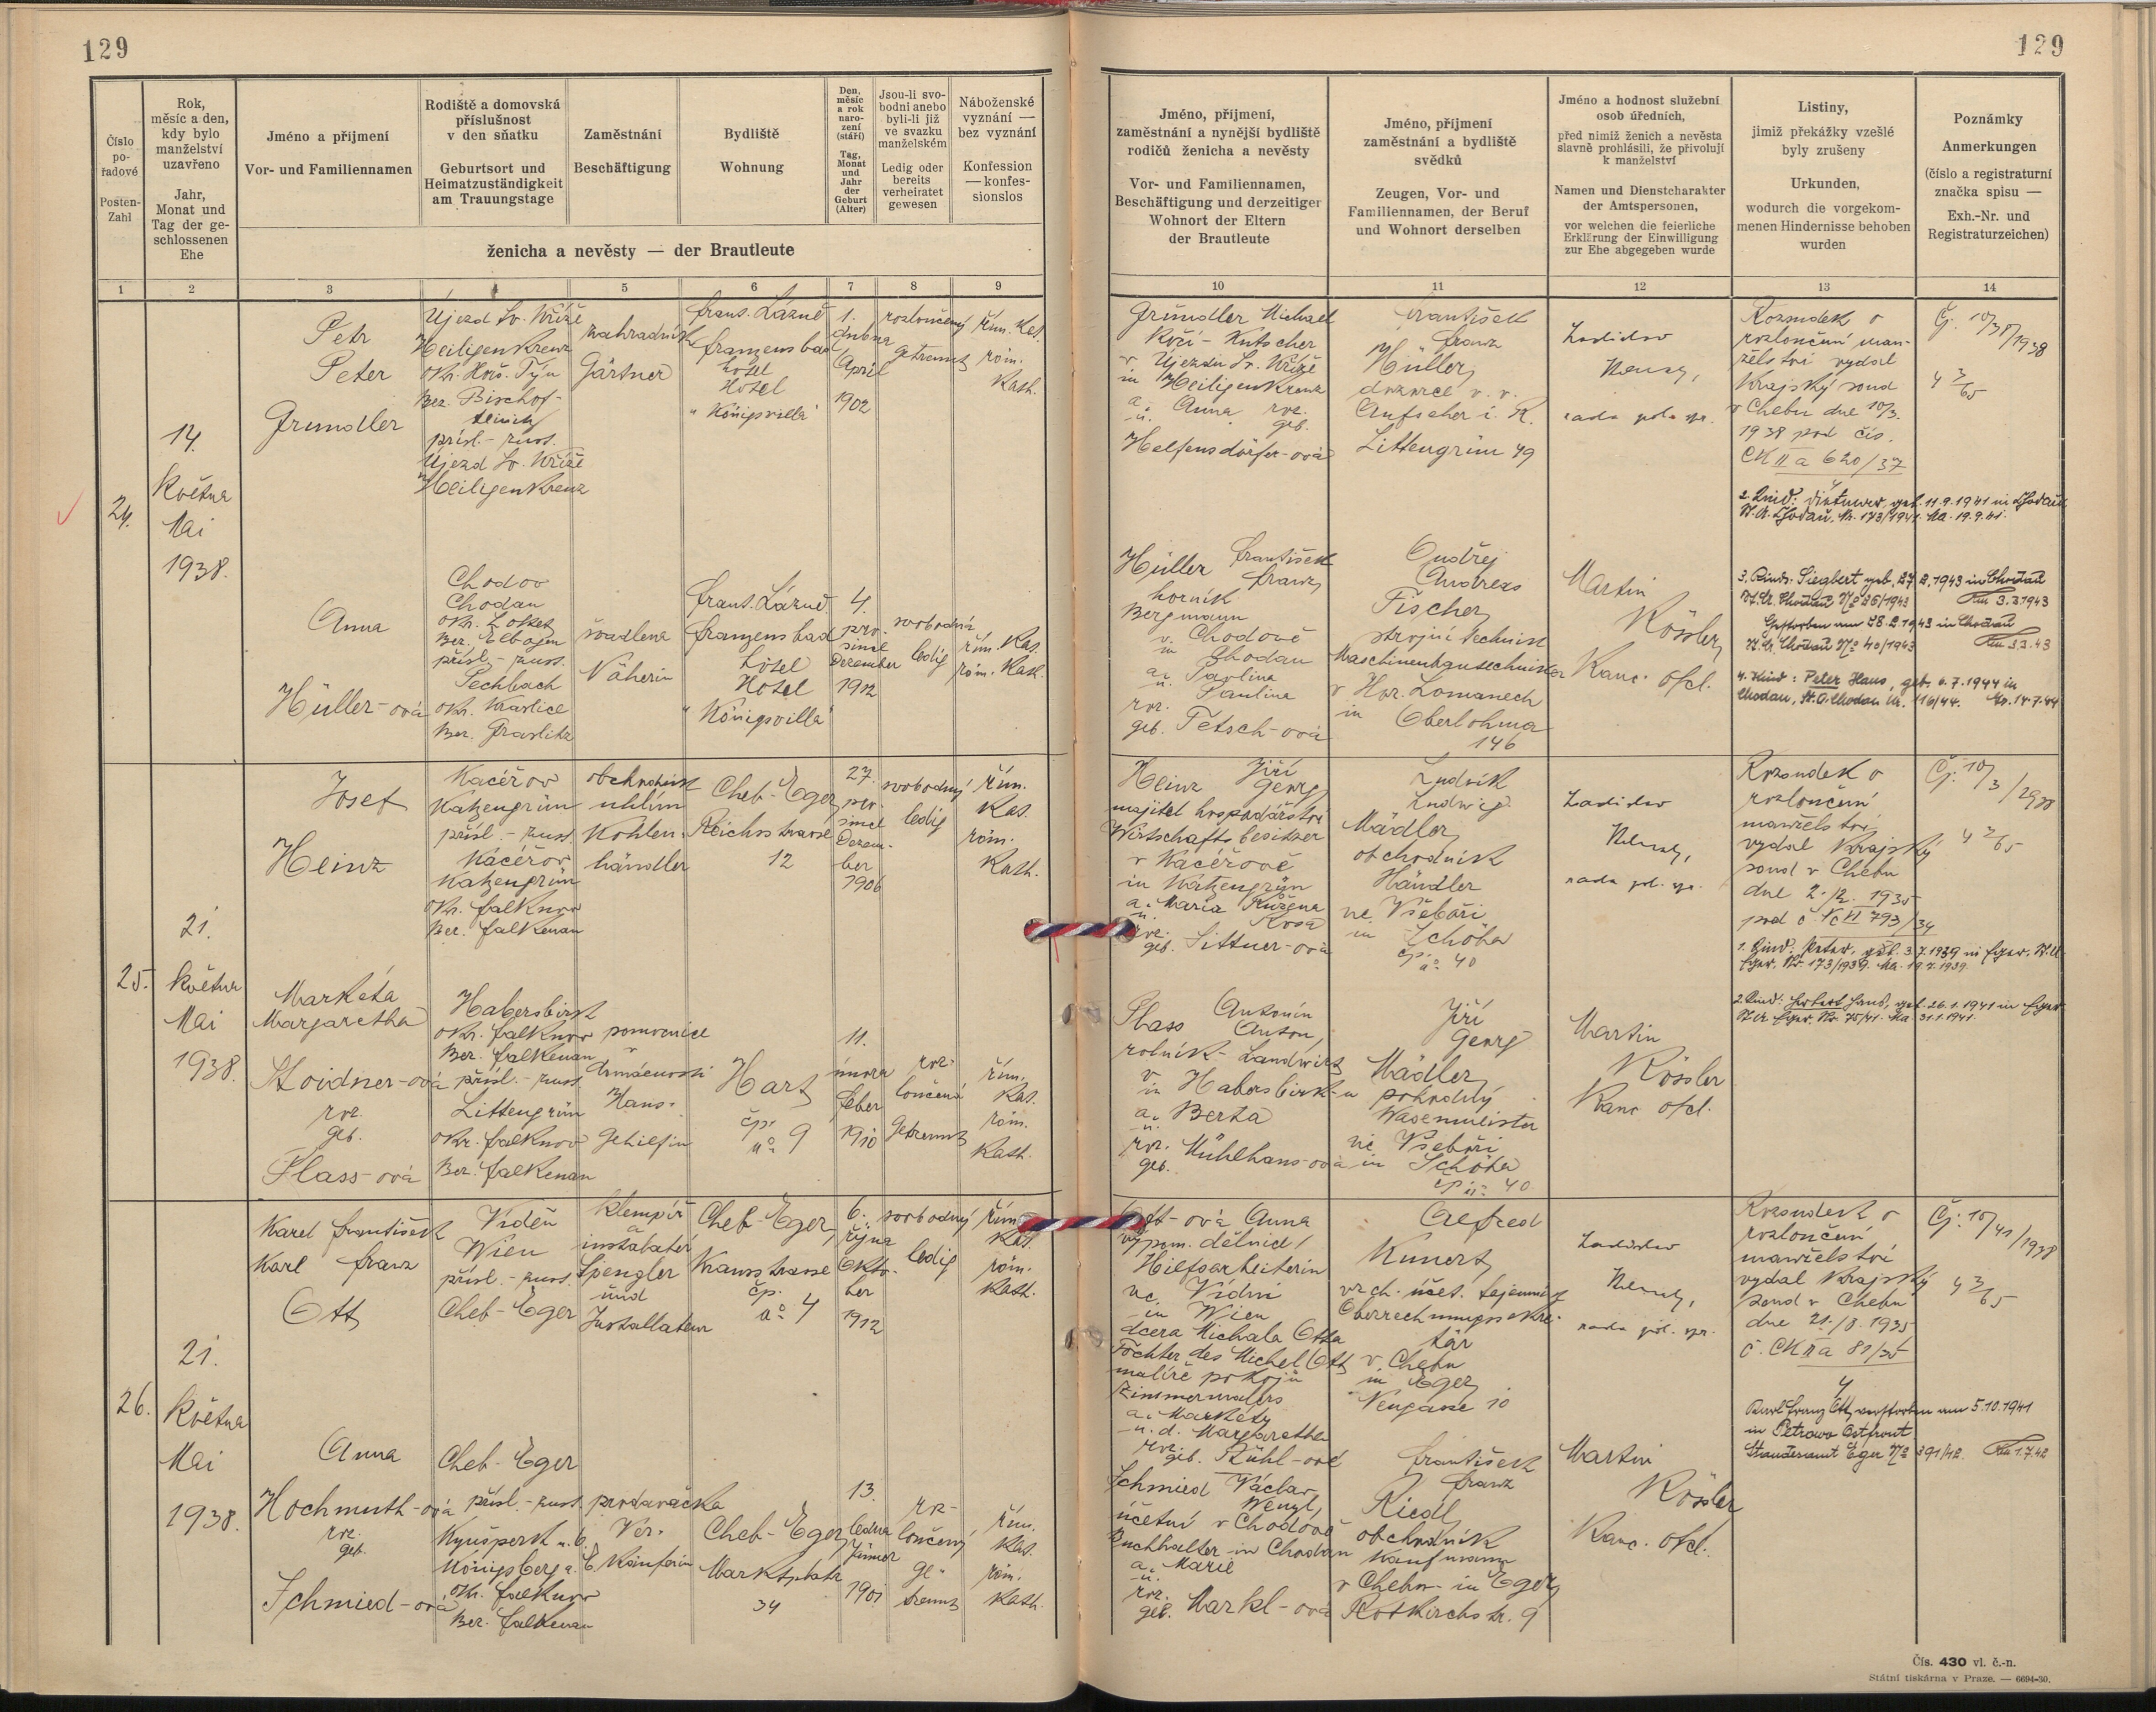 129
129
Číslo
po-
řadové
Posten-
Zahl
Rok,
měsíc a den,
kdy bylo
manželství
uzavřeno
Jahr,
Monat und
Tag der ge-
schlossenen
Ehe
Jméno a příjmení
Vor- und Familiennamen
Rodiště a domovská
příslušnost
v den sňatku
Geburtsort und
Heimatzuständigkeit
am Trauungstage
Zaměstnání
Beschäftigung
Bydliště
Wohnung
Den,
měsíc
a rok
naro-
zení
(stáří)
Tag,
Monat
und
Jahr
der
Geburt
(Alter)
Jsou-li svo-
bodni anebo
byli-li již
ve svazku
manželském
Ledig oder
bereits
verheiratet
gewesen
Náboženské
vyznání —
bez vyznání
Konfession
— konfes-
sionslos
ženicha a nevěsty — der Brautleute
Jméno, příjmení,
zaměstnání a nynější bydliště
rodičů ženicha a nevěsty
Vor- und Familiennamen,
Beschäftigung und derzeitiger
Wohnort der Eltern
der Brautleute
Jméno, příjmení
zaměstnání a bydliště
svědků
Zeugen, Vor- und
Familiennamen, der Beruf
und Wohnort derselben
Jméno a hodnost služební
osob úředních,
před nimiž ženich a nevěsta
slavně prohlásili, že přivolují
k manželství
Namen und Dienstcharakter
der Amtspersonen,
vor welchen die feierliche
Erklärung der Einwilligung
zur Ehe abgegeben wurde
Listiny,
jimiž překážky vzešlé
byly zrušeny
Urkunden,
wodurch die vorgekom-
menen Hindernisse behoben
wurden
Poznámky
Anmerkungen
(číslo a registraturní
značka spisu —
Exh.-Nr. und
Registraturzeichen)
1 2 3 4 5 6 7 8 9 10 11 12 13 14
24.
14.
Května
Mai
1938.
Petr
Peter
Grundler
Újezd Sv. Kříže
Heiligenkreuz
okr. Horš. Týn
Bez. Bischof-
teinitz
přísl. - zust.
Újezd Sv. Kříže
Heiligenkreuz
zahradník
Gärtner
Frant. Lázně
Franzensbad
hotel
Hotel
"Königsvilla"
1.
dubna
April
1902
rozloučený
getrennt
řím. kat.
röm.
kath.
Grundler Michael
Kočí - Kutscher
v Újezdu Sv. Kříže
in Heiligenkreuz
a. Anna roz.
u. geb.
Helfensdörfer-ová
František
Franz
Müller,
dozorce v. v.
Aufseher i. R.
Littengrün 49
Ladislav
rada pol. spr.
Rozsudek o
rozloučení man-
želství vydal
Krajský soud
v Chebu dne 10/3.
1938 pod čís.
CK II a 620/37
2. Kind: Dietmar, geb. 11.9.1941 in Chodau
St.A. Chodau, Nr. 173/1941. Ma. 19.9.41.
Čj. 10/38/1938
4 3/65
Anna
Müller-ová
Chodov
Chodau
okr. Loket
Bez. Elbogen
přísl. - zust.
Pechbach
okr. Kraslice
Bez. Graslitz
švadlena
Näherin
Frant. Lázně
Franzensbad
hotel
Hotel
"Königsvilla"
4.
pro-
since
Dezember
1912
svobodná
ledig
řím. kat.
röm. kath.
Müller František
Franz,
horník
Bergmann
v Chodově
in Chodau
a. Pavlina
u. Paulina
roz.
geb. Petsch-ová
Ondřej
Andreas
Fischer,
strojní technik
Maschinenbautechniker
v Hor. Lomanech
in Oberlohma
146
Martin
Rössler,
Kanc. ofcl.
3. Kind: Siegbert geb. 27.2.1943 in Chodau
St.A. Chodau No 36/1943 3.3.1943
Gestorben am 28.2.1943 in Chodau
St.A. Chodau No 40/1943 3.3.43
4. Kind: Peter Hans, geb. 6.7.1944 in
Chodau, St.A. Chodau Nr. 116/44. 14.7.44
25.
21.
Května
Mai
1938.
Josef
Heinz
Kacéřov
Katzengrün
přísl. - zust.
Kacéřov
Katzengrün
okr. Falknov
Bez. Falkenau
obchodník
uhlím
Kohlen-
händler
Cheb-Eger,
Reichsstrasse
12
27.
pro-
since
Dezem-
ber
1906
svobodný
ledig
řím.
kat.
röm.
kath.
Heinz Jiří
Georg
majitel hospodářství
Wirtschaftsbesitzer
v Kacéřově
in Katzengrün
a. Maria Růžena
u. Rosa
roz.
geb. Sittner-ová
Ludvík
Ludwig
Mädler,
obchodník
Händler
ve Všeboři
in Schöba
čp.
No 40
Ladislav
rada pol. spr.
Rozsudek o
rozloučení
manželství
vydal Krajský
soud v Chebu
dne 2./2. 1935
pod č. Nc VI 793/34
1. Kind: Peter, geb. 3.7.1939 in Eger, St.A.
Eger, Nr. 173/1939. Ma. 19.7.1939.
2. Kind: Herbert Hans, geb. 26.1.1941 in Eger
St.A. Eger, Nr. 75/41. Ma. 31.1.1941.
Čj. 10/3/1938
4 2/65
Markéta
Margaretha
Stoidner-ová
roz.
geb.
Plass-ová
Habersbirk
okr. Falknov
Bez. Falkenau
přísl. - zust.
Littengrün
okr. Falknov
Bez. Falkenau
pomocnice
v
domácnosti
Haus-
gehilfin
Hart
čp.
No 9
11.
února
Feber
1910
roz-
loučená
getrennt
řím.
kat.
röm.
kath.
Plass Antonín
Anton,
rolník - Landwirt
v
in Habersbirk-u
a. Berta
u.
roz. Mühlhans-ová
geb.
Jiří
Georg
Mädler,
pohodný
Wasenmeister
ve Všeboři
in Schöba
čp. No 40
Martin
Rössler
Kanc ofcl.
26.
21.
Května
Mai
1938.
Karel František
Karl Franz
Ott
Vídeň
Wien
přísl. - zust.
Cheb-Eger
klempíř
a
instalatér
Spengler
und
Installateur
Cheb-Eger,
Kransstrasse
čp.
No 4
6.
října
Okto-
ber
1912
svobodný
ledig
řím.
kat.
röm.
kath.
Ott-ová Anna
výpom. dělnice
Hilfsarbeiterin
ve Vídni
in Wien
dcera Michala Otta
Tochter des Michel Ott
malíře pokojů
Zimmermalers
a. Markéty
u. d. Margaretha
roz.
geb. Rühl-ové
Alfred
Kunert,
vrch. účet. tajemník
Oberrechnungssekre-
tär
v Chebu
in Eger
Neugasse 10
Ladislav
rada pol. spr.
Rozsudek o
rozloučení
manželství
vydal Krajský
soud v Chebu
dne 21./8. 1935
č. CK II a 81/35
Karl Franz Ott, verstorben am 5.10.1941
in Petrowo Ostfront
Standesamt Eger No 391/42. 1.7.42
Čj. 10/41/1938
4 3/65
Anna
Hochmuth-ová
roz.
geb.
Schmied-ová
Cheb-Eger
přísl. - zust.
Kynšperk n. O.
Königsberg a. E.
okr. Falknov
Bez. Falkenau
prodavačka
Ver-
käuferin
Cheb-Eger,
Marktplatz
34
13.
ledna
Jänner
1901
roz-
loučený
ge-
trennt
řím.
kat.
röm.
kath.
Schmied Václav
Wenzl,
účetní v Chodově
Buchhalter in Chodau
a. Marie
u.
roz.
geb. Markl-ová
František
Franz
Riedl,
obchodník
Kaufmann
v Chebu - in Eger,
Rotkirchstr. 9
Martin
Rössler
Kanc. ofcl.
Čís. 430 vl. č.-n.
Státní tiskárna v Praze. — 6694-30.